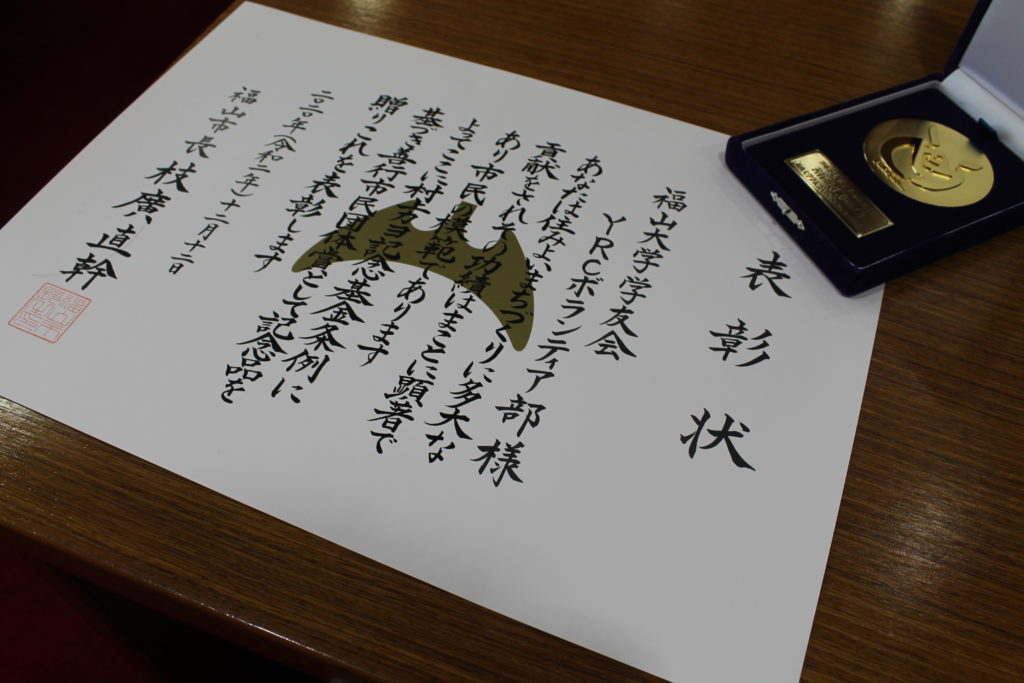 表彰状
福山大学学友会
YRCボランティア部様
あなたは住みよいまちづくりに多大な
貢献をされその功績はまことに顕著で
あり市民の模範であります
よってここに村上方ヨ記念基金条例に
基づき善行市民団体賞として記念品を
贈りこれを表彰します
二〇二〇年(令和二年)十二月十二日
福山市長 枝廣直幹